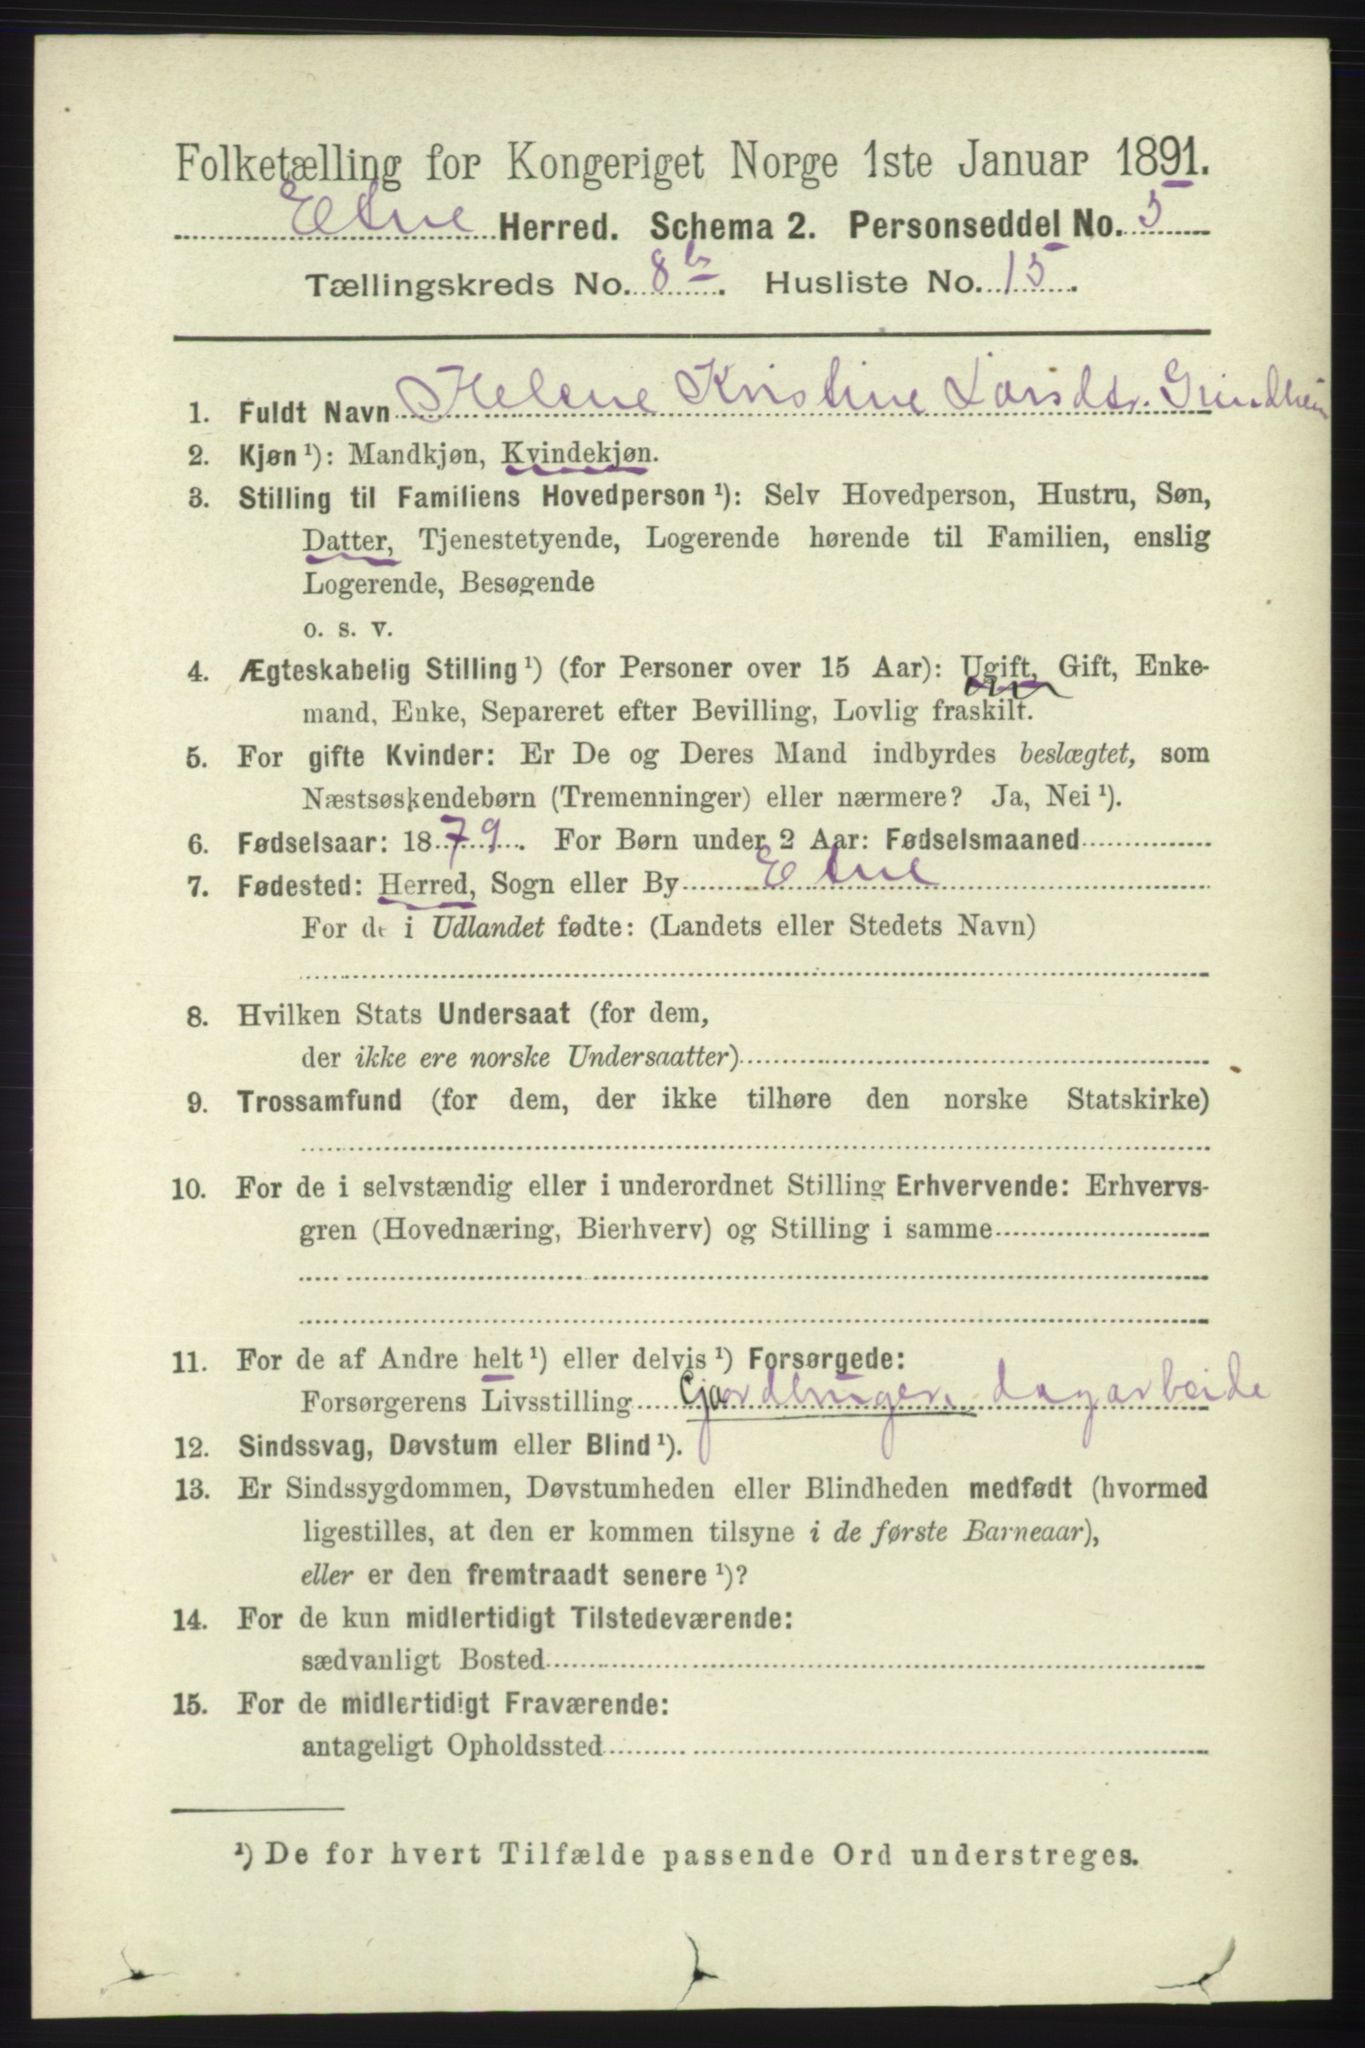 Folketælling for Kongeriget Norge 1ste Januar 1891.
Etne Herred. Schema 2. Personseddel No. 5
Tællingskreds No. 8b. Husliste No. 15.
1. Fuldt Navn Helene Kristine Larsdtr. Grindheim
2. Kjøn ¹): Mandkjøn, Kvindekjøn.
3. Stilling til Familiens Hovedperson ¹): Selv Hovedperson, Hustru, Søn,
Datter, Tjenestetyende, Logerende hørende til Familien, enslig
Logerende, Besøgende
o. s. v.
4. Ægteskabelig Stilling ¹) (for Personer over 15 Aar): Ugift, Gift, Enke-
mand, Enke, Separeret efter Bevilling, Lovlig fraskilt.
5. For gifte Kvinder: Er De og Deres Mand indbyrdes beslægtet, som
Næstsøskendebørn (Tremenninger) eller nærmere? Ja, Nei ¹).
6. Fødselsaar: 1879. For Børn under 2 Aar: Fødselsmaaned
7. Fødested: Herred, Sogn eller By Etne
For de i Udlandet fødte: (Landets eller Stedets Navn)
8. Hvilken Stats Undersaat (for dem,
der ikke ere norske Undersaatter)
9. Trossamfund (for dem, der ikke tilhøre den norske Statskirke)
10. For de i selvstændig eller i underordnet Stilling Erhvervende: Erhvervs-
gren (Hovednæring, Bierhverv) og Stilling i samme
11. For de af Andre helt ¹) eller delvis ¹) Forsørgede:
Forsørgerens Livsstilling Gjordbruger, dagarbeide
12. Sindssvag, Døvstum eller Blind ¹).
13. Er Sindssygdommen, Døvstumheden eller Blindheden medfødt (hvormed
ligestilles, at den er kommen tilsyne i de første Barneaar),
eller er den fremtraadt senere ¹)?
14. For de kun midlertidigt Tilstedeværende:
sædvanligt Bosted
15. For de midlertidigt Fraværende:
antageligt Opholdssted
¹) De for hvert Tilfælde passende Ord understreges.